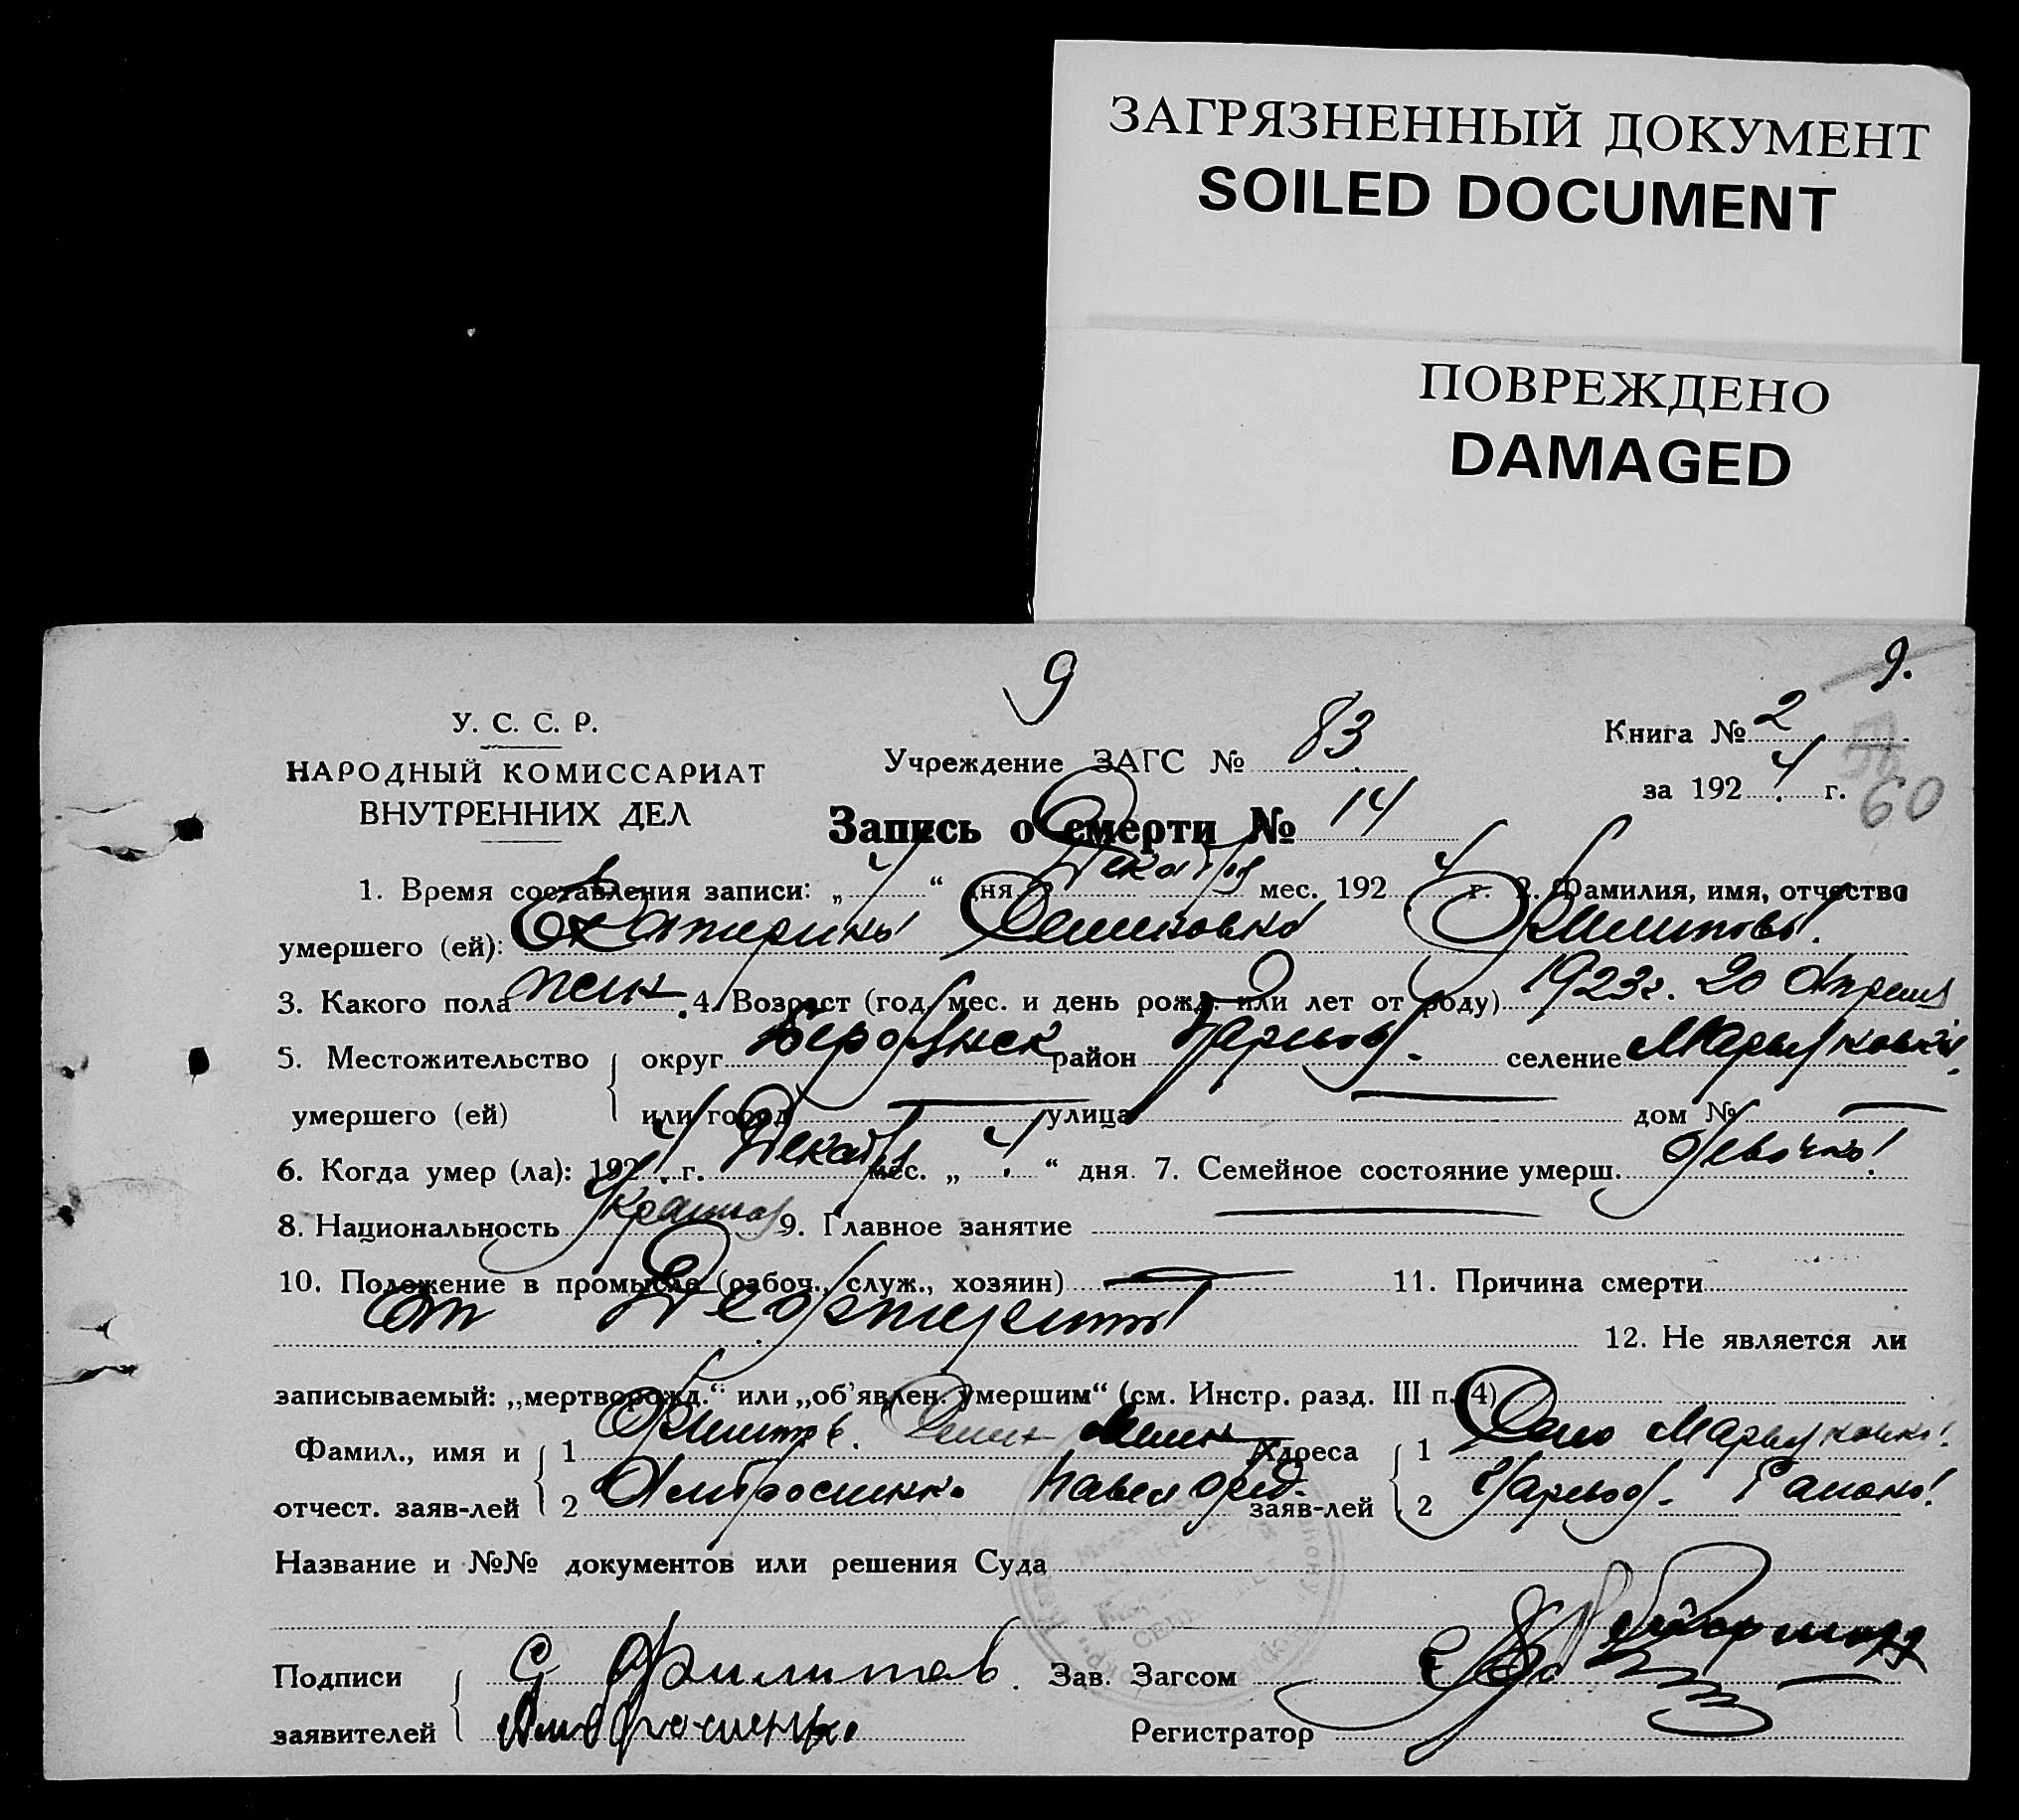 ЗАГРЯЗНЕННЫЙ ДОКУМЕНТ
SOILED DOCUMENT
ПОВРЕЖДЕНО
DAMAGED
9 9.
У. С. С. Р.
НАРОДНЫЙ КОМИССАРИАТ
ВНУТРЕННИХ ДЕЛ
Учреждение ЗАГС № 83
Книга № 2
за 1924 г.
60
Запись о смерти № 14
1. Время составления записи: „4“ дня Декабря мес. 1924 г. 2. Фамилия, имя, отчество
умершего (ей): Екатерина Филипова
3. Какого пола жен. 4. Возраст (год, мес. и день рожд. или лет от роду) 1923 г. 20 Апреля
5. Местожительство округ район Царевод. селение
умершего (ей) или город — улица — дом № —
6. Когда умер (ла): 1924 г. Декабр мес. „4“ дня. 7. Семейное состояние умерш. девочка
8. Национальность 9. Главное занятие —
10. Положение в промысле (рабоч., служ., хозяин) — 11. Причина смерти
От Дефтерита 12. Не является ли
записываемый: „мертворожд.“ или „об'явлен. умершим“ (см. Инстр. разд. III п. 4)
Фамил., имя и 1 Филипов Адреса 1 Село
отчест. заяв-лей 2 Амбросенко Павел заяв-лей 2 Царевод. Района
Название и №№ документов или решения Суда
Подписи С Филипов Зав. Загсом
заявителей Амбросенко Регистратор